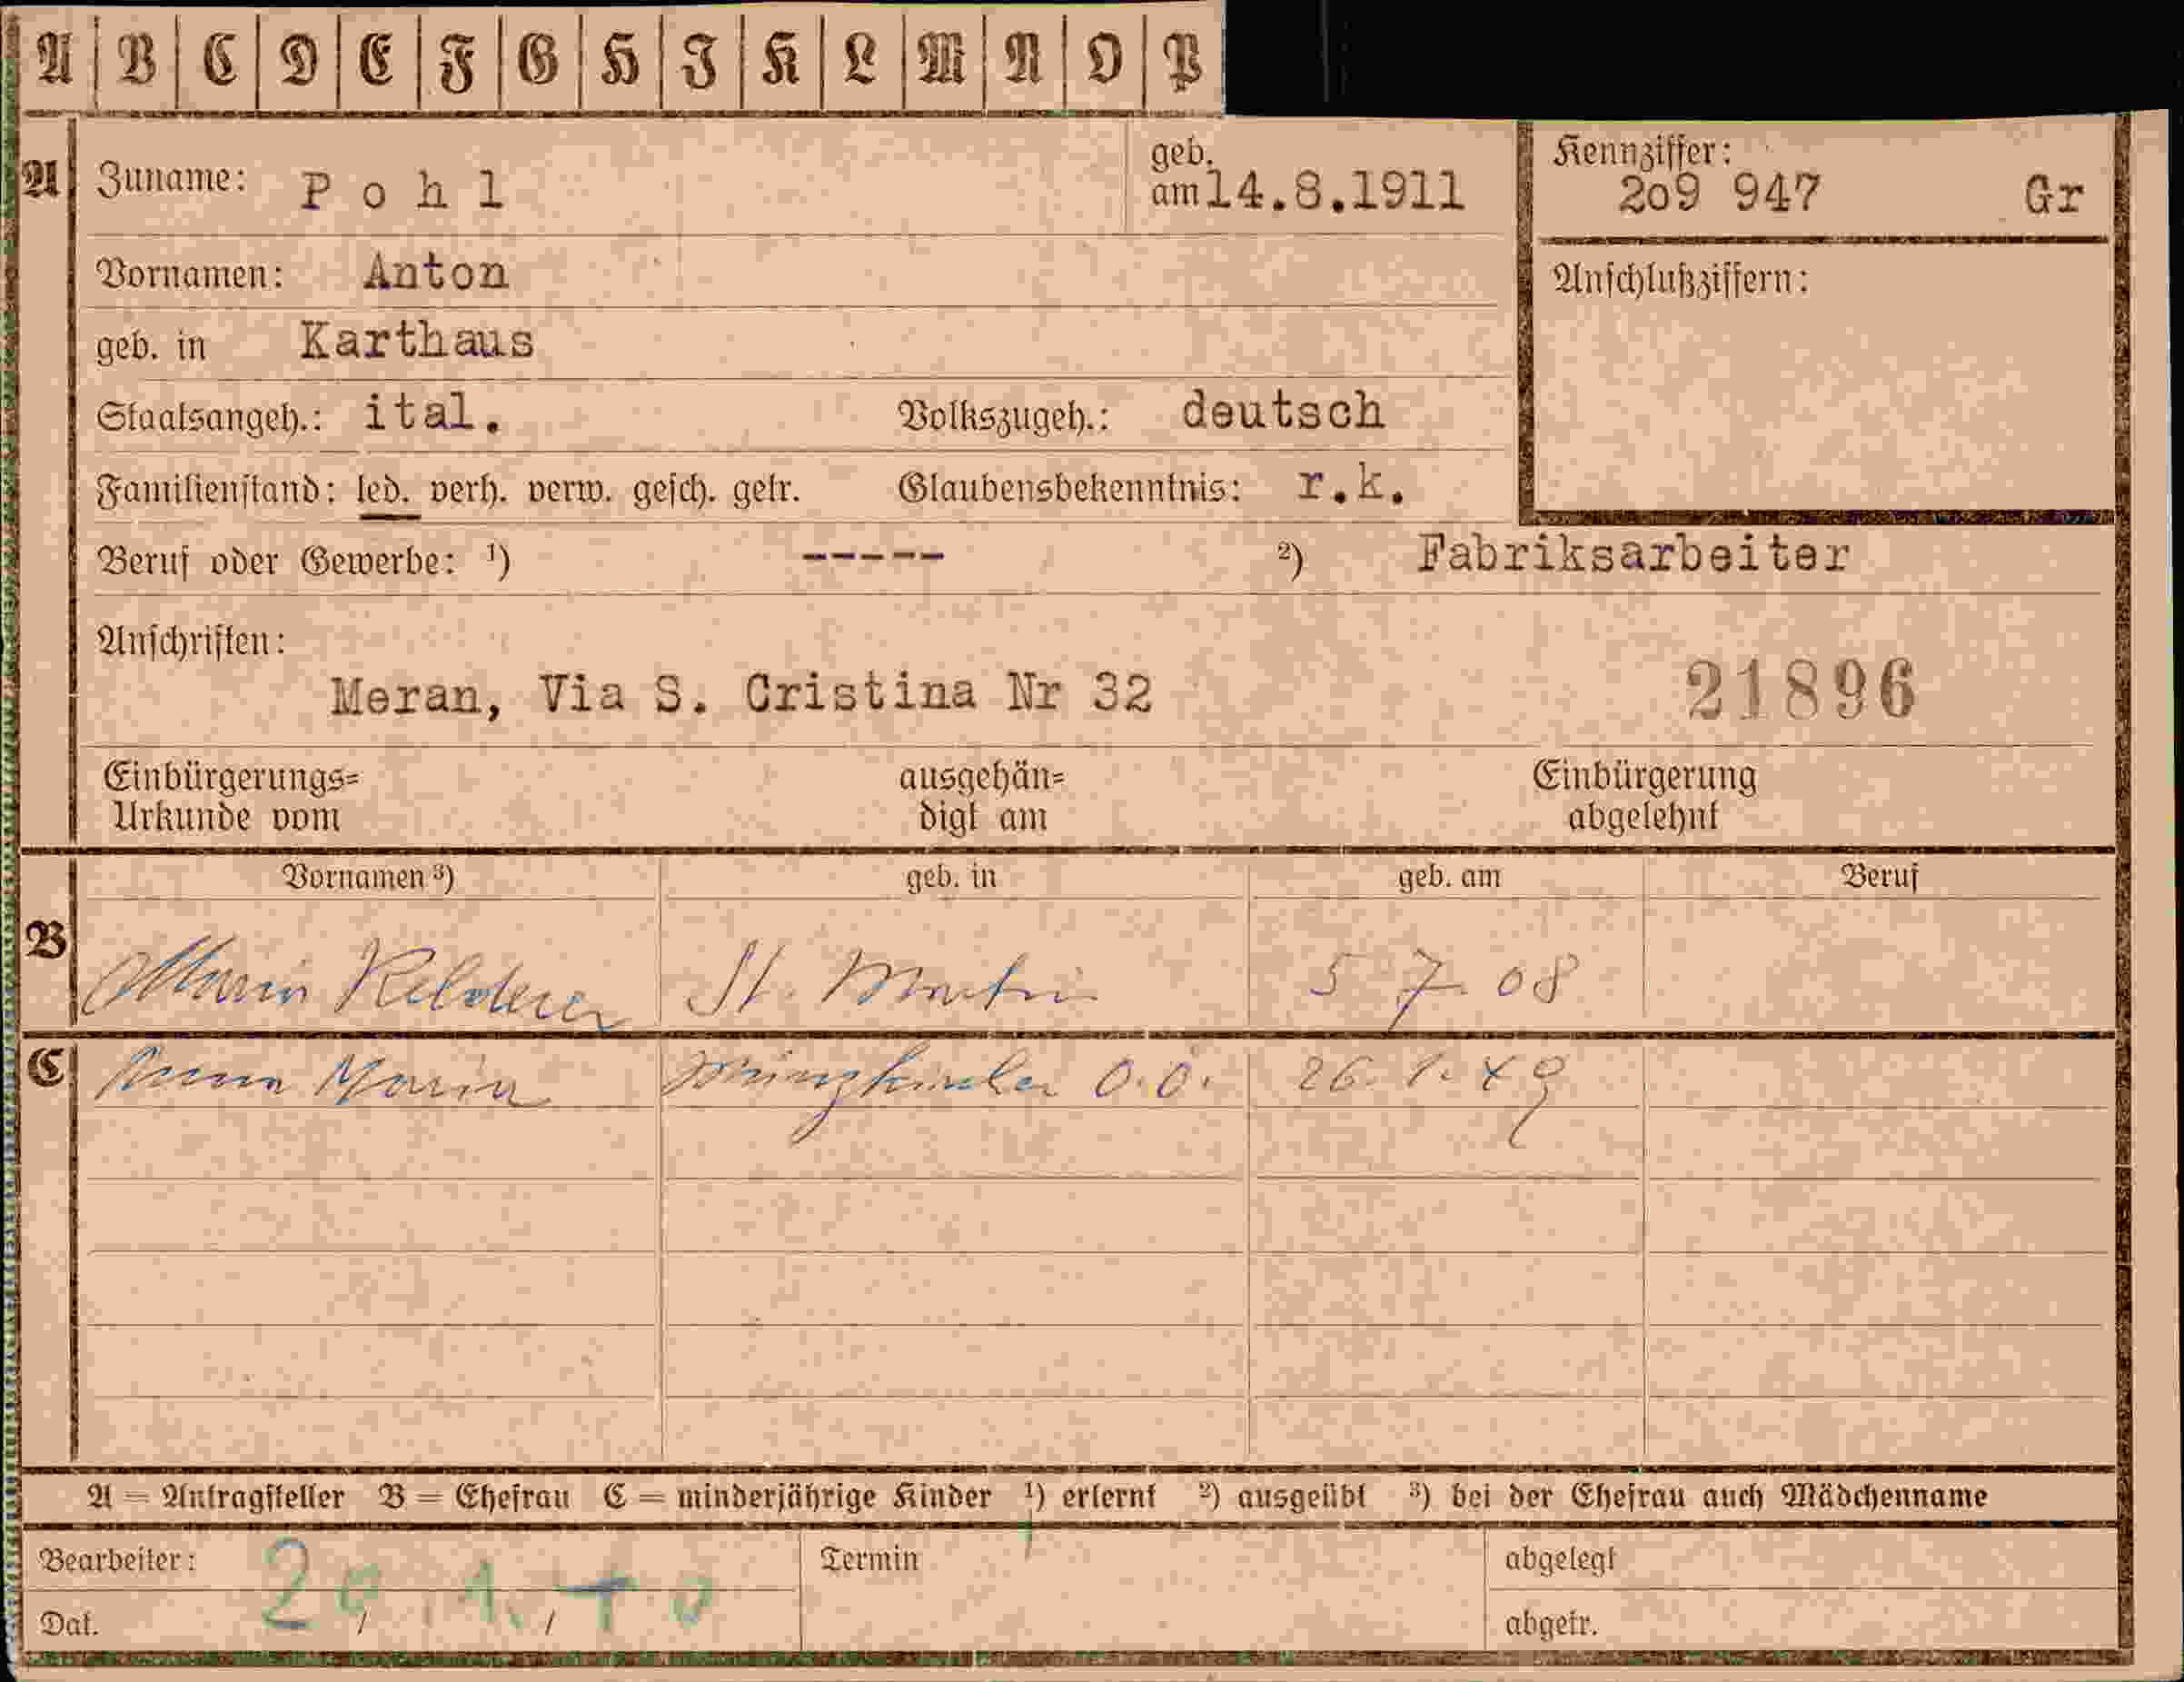 A B C D E F G H I K L M N O P
A Zuname: Pohl geb. am 14.8.1911 Kennziffer: 209 947 Gr
Vornamen: Anton Anschlußziffern:
geb. in Karthaus
Staatsangeh.: ital. Volkszugeh.: deutsch
Familienstand: led. verh. verw. gesch. getr. Glaubensbekenntnis: r.k.
Beruf oder Gewerbe: ¹) ----- ²) Fabriksarbeiter
Anschriften:
Meran, Via S. Cristina Nr 32 21896
Einbürgerungs= ausgehän= Einbürgerung
Urkunde vom digt am abgelehnt
Vornamen ³) geb. in geb. am Beruf
B Maria St. Martin 5 7. 08
C Anna Maria O.Ö. 26. 1. 49
A = Antragsteller B = Ehefrau C = minderjährige Kinder ¹) erlernt ²) ausgeübt ³) bei der Ehefrau auch Mädchenname
Bearbeiter: Termin abgelegt
Dat. / / abgetr.